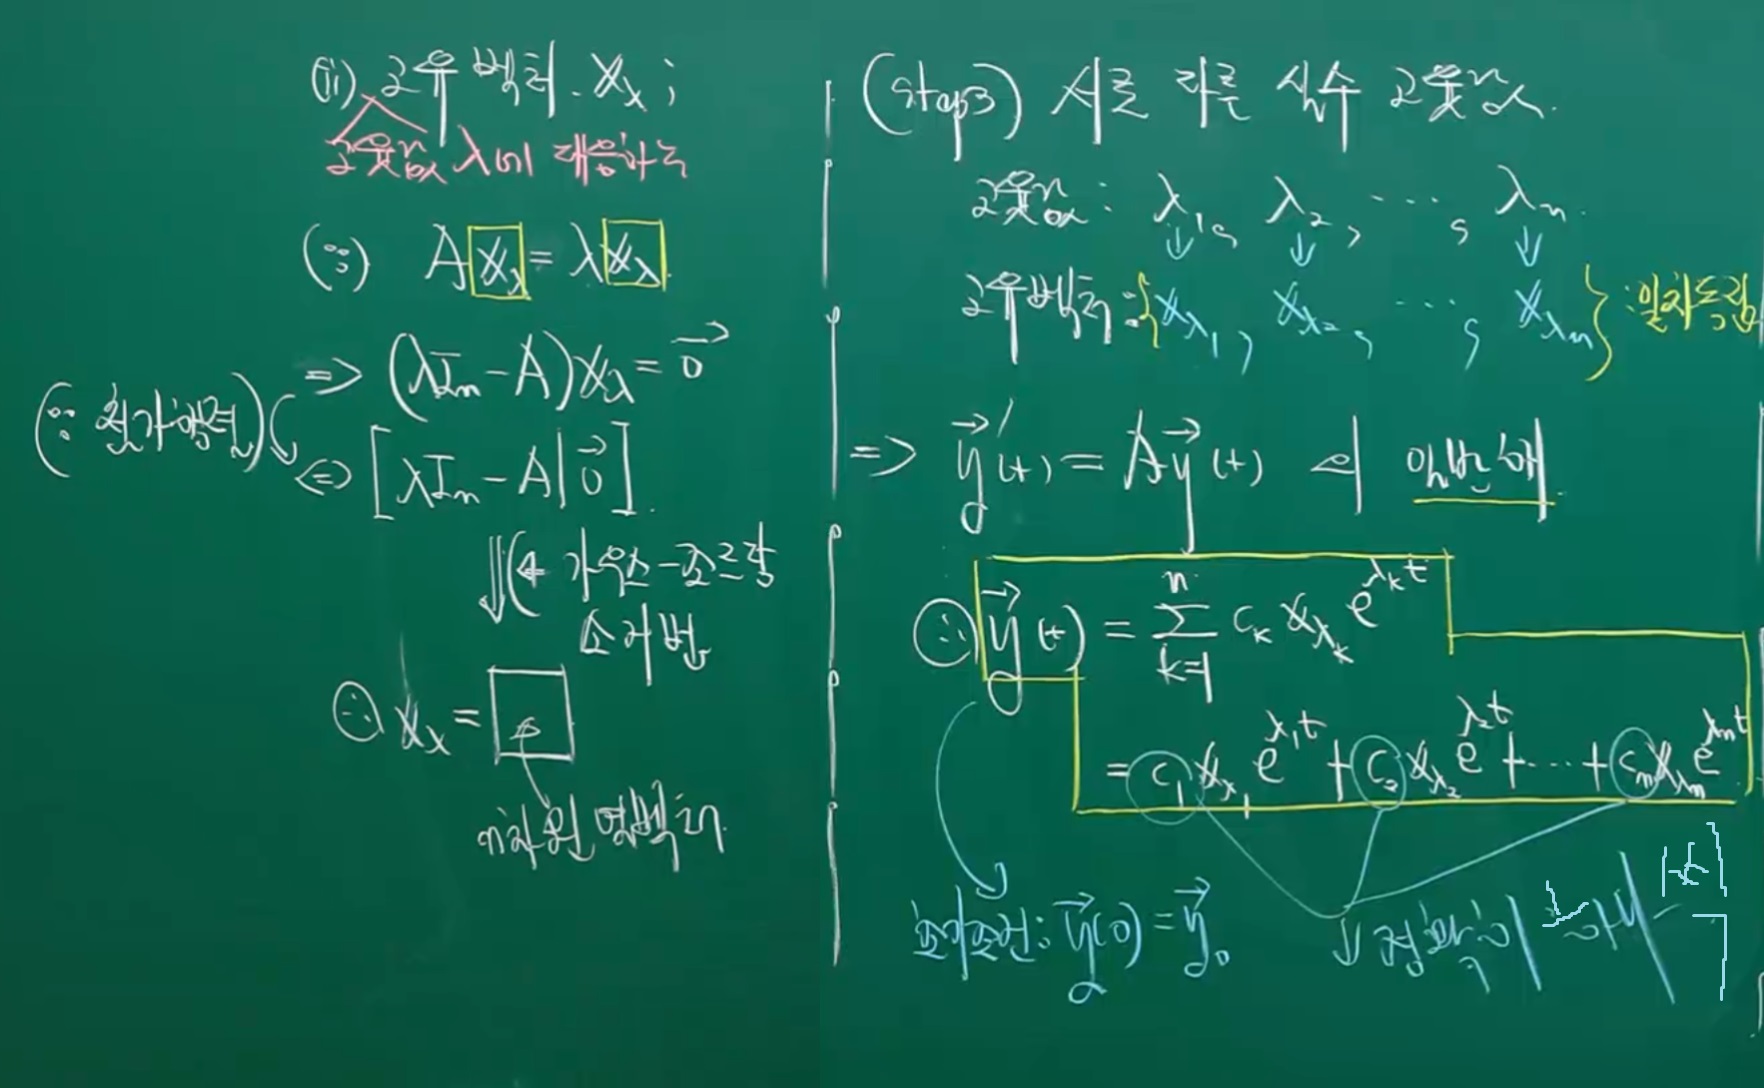 (ii) 고유벡터 𝕏_λ ;
고윳값 λ에 대응하는
(∵) A𝕏_λ = λ𝕏_λ
=> (λI_n - A)𝕏_λ = \vec{0}
(∵ 첨가행렬)
<=> [λI_n - A | \vec{0}]
⇓ (← 가우스-조르당
소거법
∴ 𝕏_λ = □
n차원 열벡터
(step3) 서로 다른 실수 고윳값.
고윳값 : λ_1, λ_2, ⋯, λ_n.
고유벡터 : {𝕏_{λ_1}, 𝕏_{λ_2}, ⋯, 𝕏_{λ_n}} : 일차독립
=> \vec{y}'(t) = A\vec{y}(t) 의 일반해
∴ \vec{y}(t) = \sum_{k=1}^{n} c_k 𝕏_{λ_k} e^{λ_k t}
= c_1 𝕏_{λ_1} e^{λ_1 t} + c_2 𝕏_{λ_2} e^{λ_2 t} + ⋯ + c_n 𝕏_{λ_n} e^{λ_n t}
초기조건 : \vec{y}(0) = \vec{y}_0
↓ 정확히